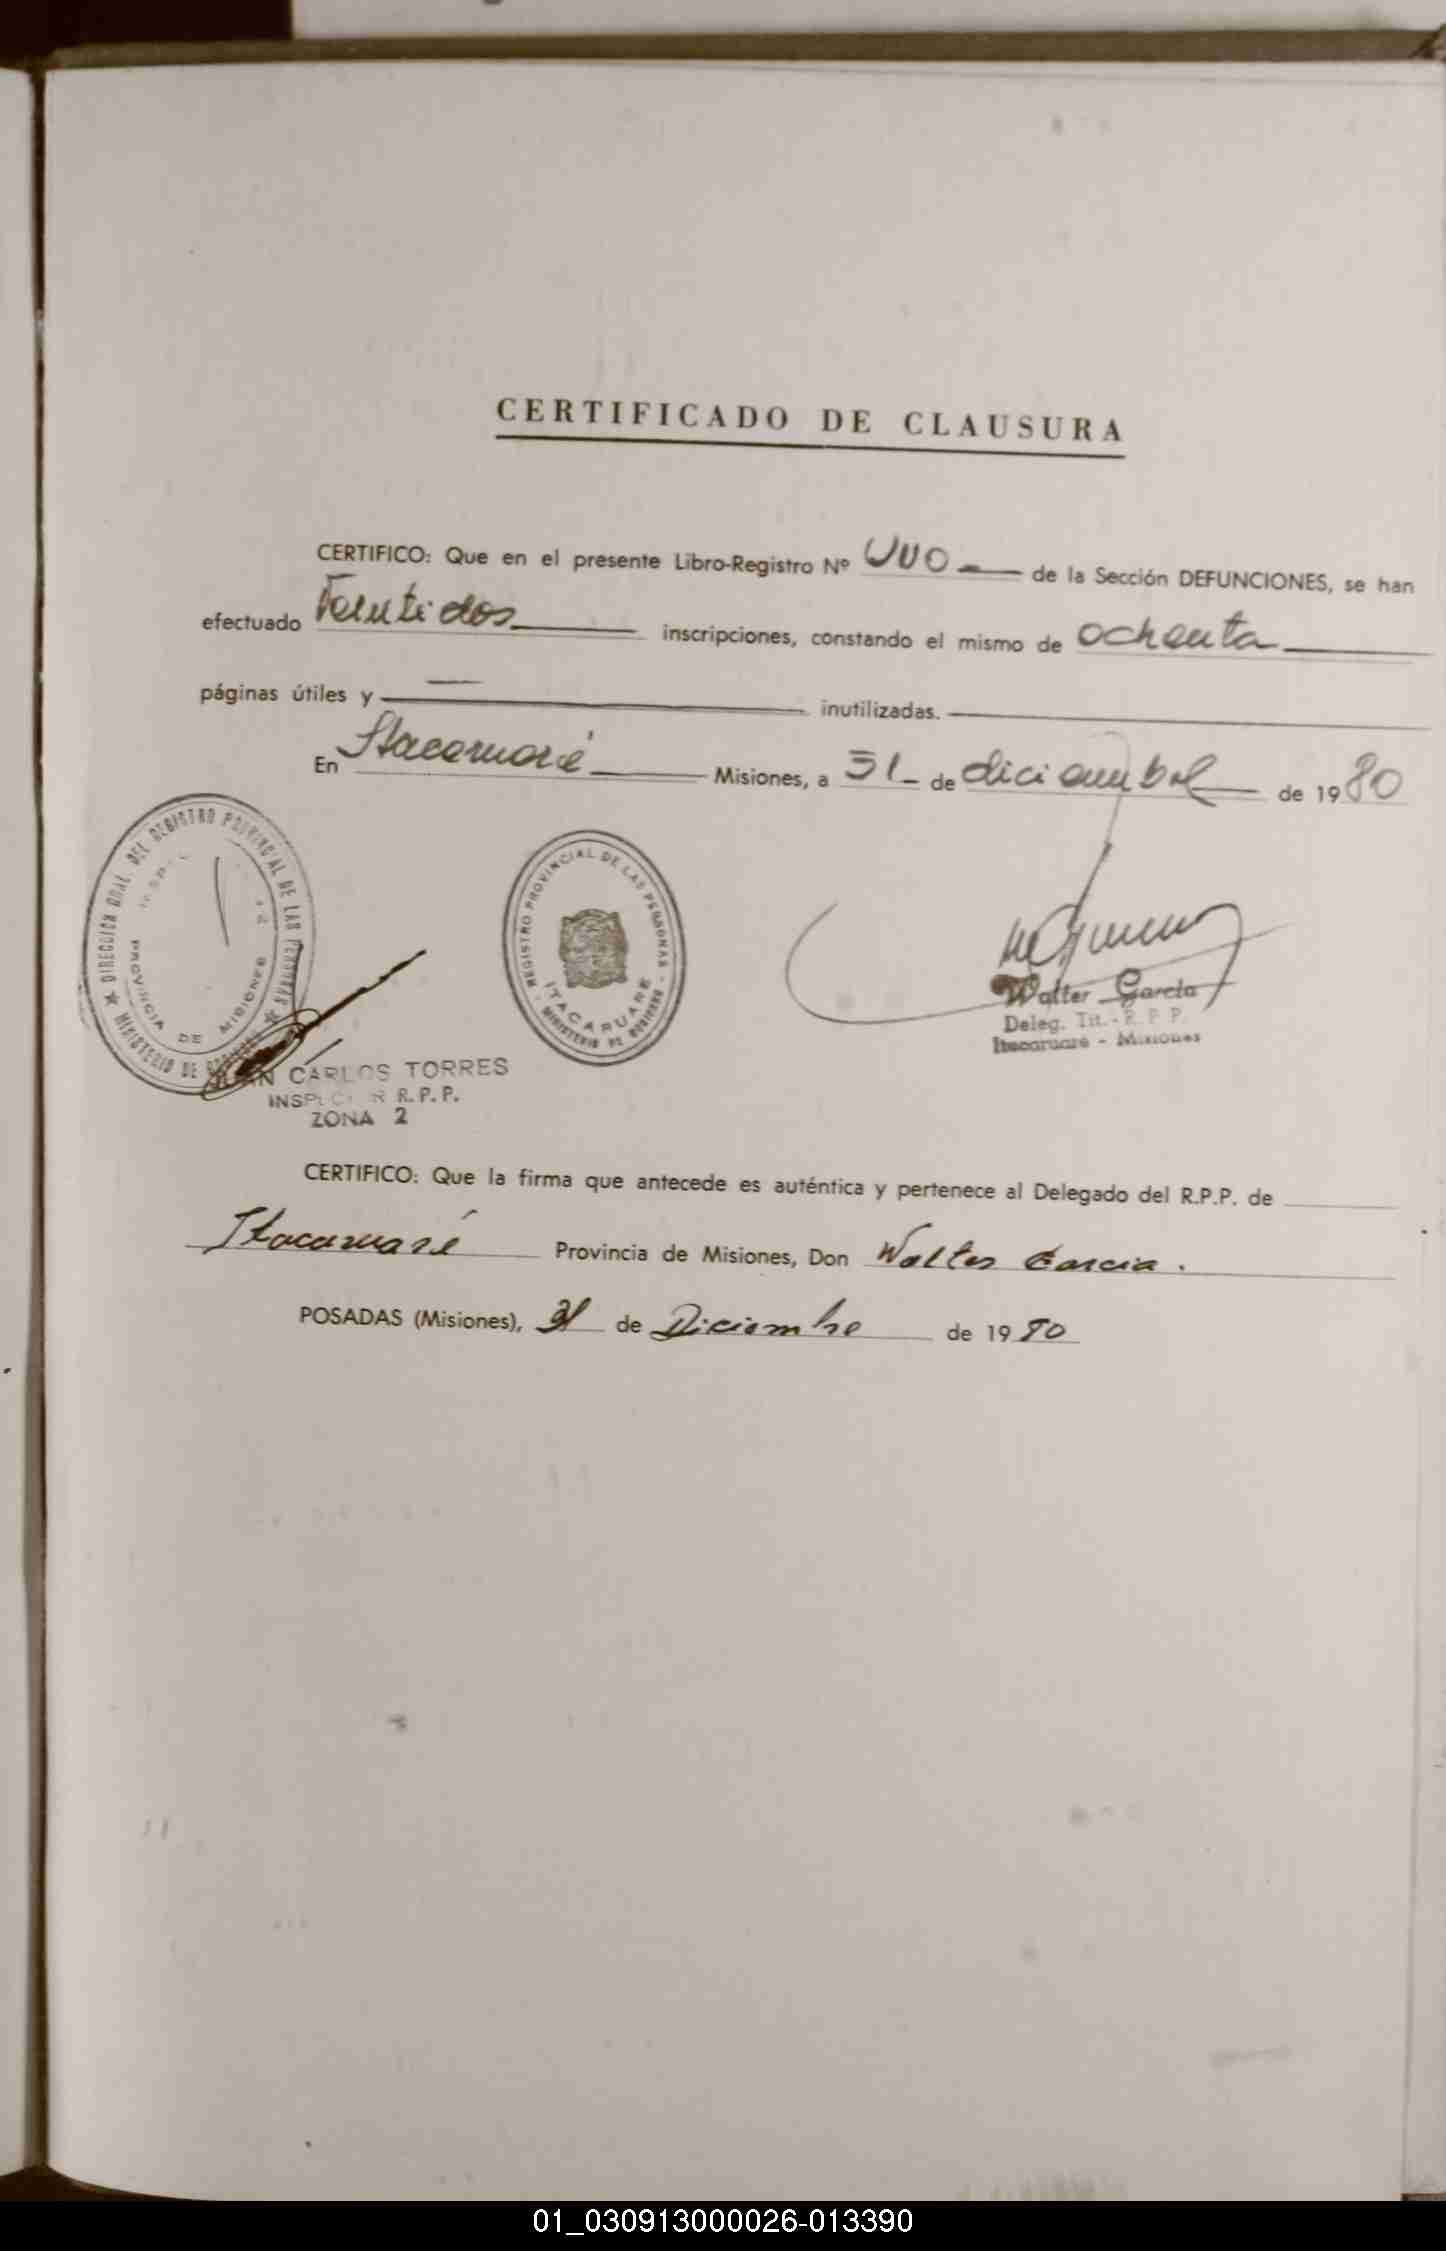 CERTIFICADO DE CLAUSURA
CERTIFICO: Que en el presente Libro-Registro Nº UNO de la Sección DEFUNCIONES, se han
efectuado Veintidos inscripciones, constando el mismo de ochenta
páginas útiles y — inutilizadas.
En Itacaruaré Misiones, a 31 de diciembre de 1980
DIRECCION GRAL. DEL REGISTRO PROVINCIAL DE LAS PERSONAS
MINISTERIO DE
PROVINCIA DE MISIONES
REGISTRO PROVINCIAL DE LAS PERSONAS
ITACARUARE
MINISTERIO DE GOBIERNO
Walter García
Deleg. Tit. - R. P. P.
Itacaruaré - Misiones
JUAN CARLOS TORRES
INSPECTOR R.P.P.
ZONA 2
CERTIFICO: Que la firma que antecede es auténtica y pertenece al Delegado del R.P.P. de
Itacaruaré Provincia de Misiones, Don Walter Garcia.
POSADAS (Misiones), 31 de Diciembre de 1980
01_030913000026-013390